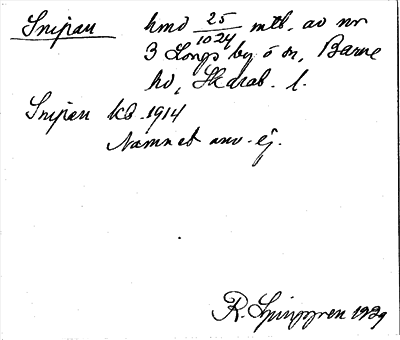 Snipan hmd 25/1024 mtl. av nr
3 Longs by ö dn, Barne
hd, Skarab. l.
Snipen kb. 1914
Namnet anv. ej.
R. Ljunggren 1929